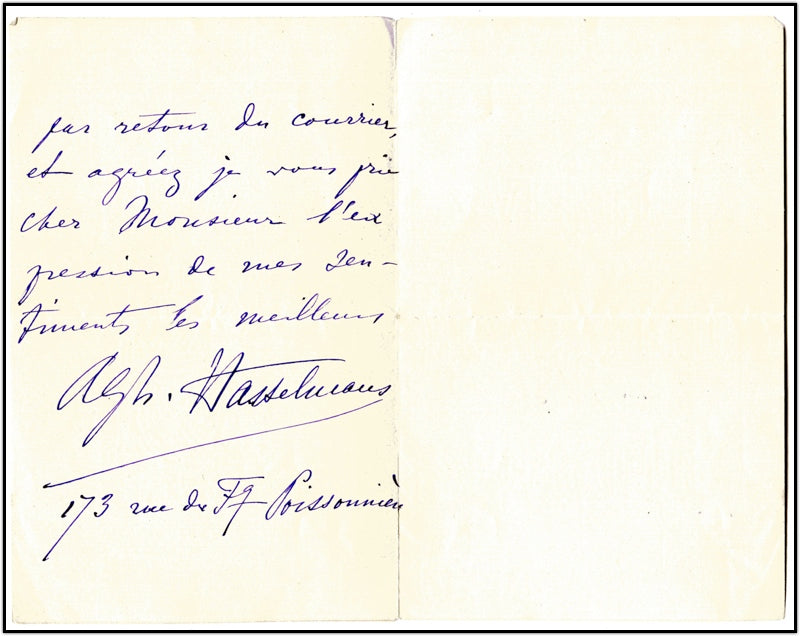 par retour du courrier,
et agréez je vous prie
cher Monsieur l'ex
pression de mes sen-
timents les meilleurs
Alph. Hasselmans
173 rue du Fg Poissonnière